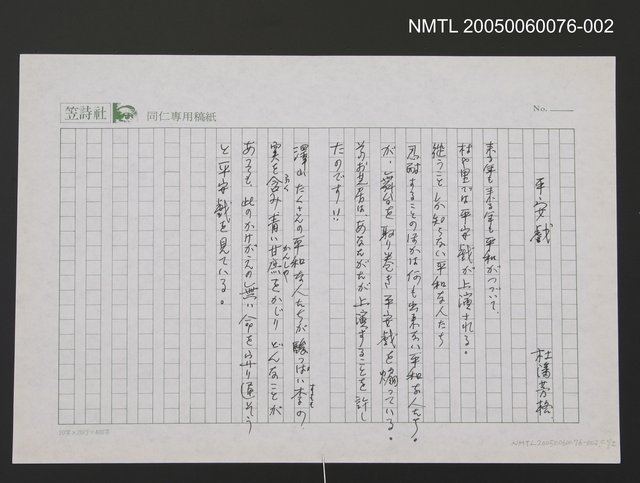 NMTL 20050060076-002
笠詩社
同仁専用稿紙
No.
平安戯
杜潘芳格
来る年も来る年も平和がつづいて、
村や里では平安戯が上演される。
従うことしか知らない平和な人たち
忍耐することのほかは何も出来ない平和な人たち。
が、舞台を取り巻き平安戯を煽っている。
そのお芝居は、あなたがたが上演することを許し
たのです!!
澤山 たくさんの平和な人たちが酸っぱい李の
すもも
実を含み青い甘蔗をかじり どんなことが
ふく
かんしゃ
あっても、此のかけがえの無い命を守り通そう
と平安戯を見ている。
NMTL20050060076-002